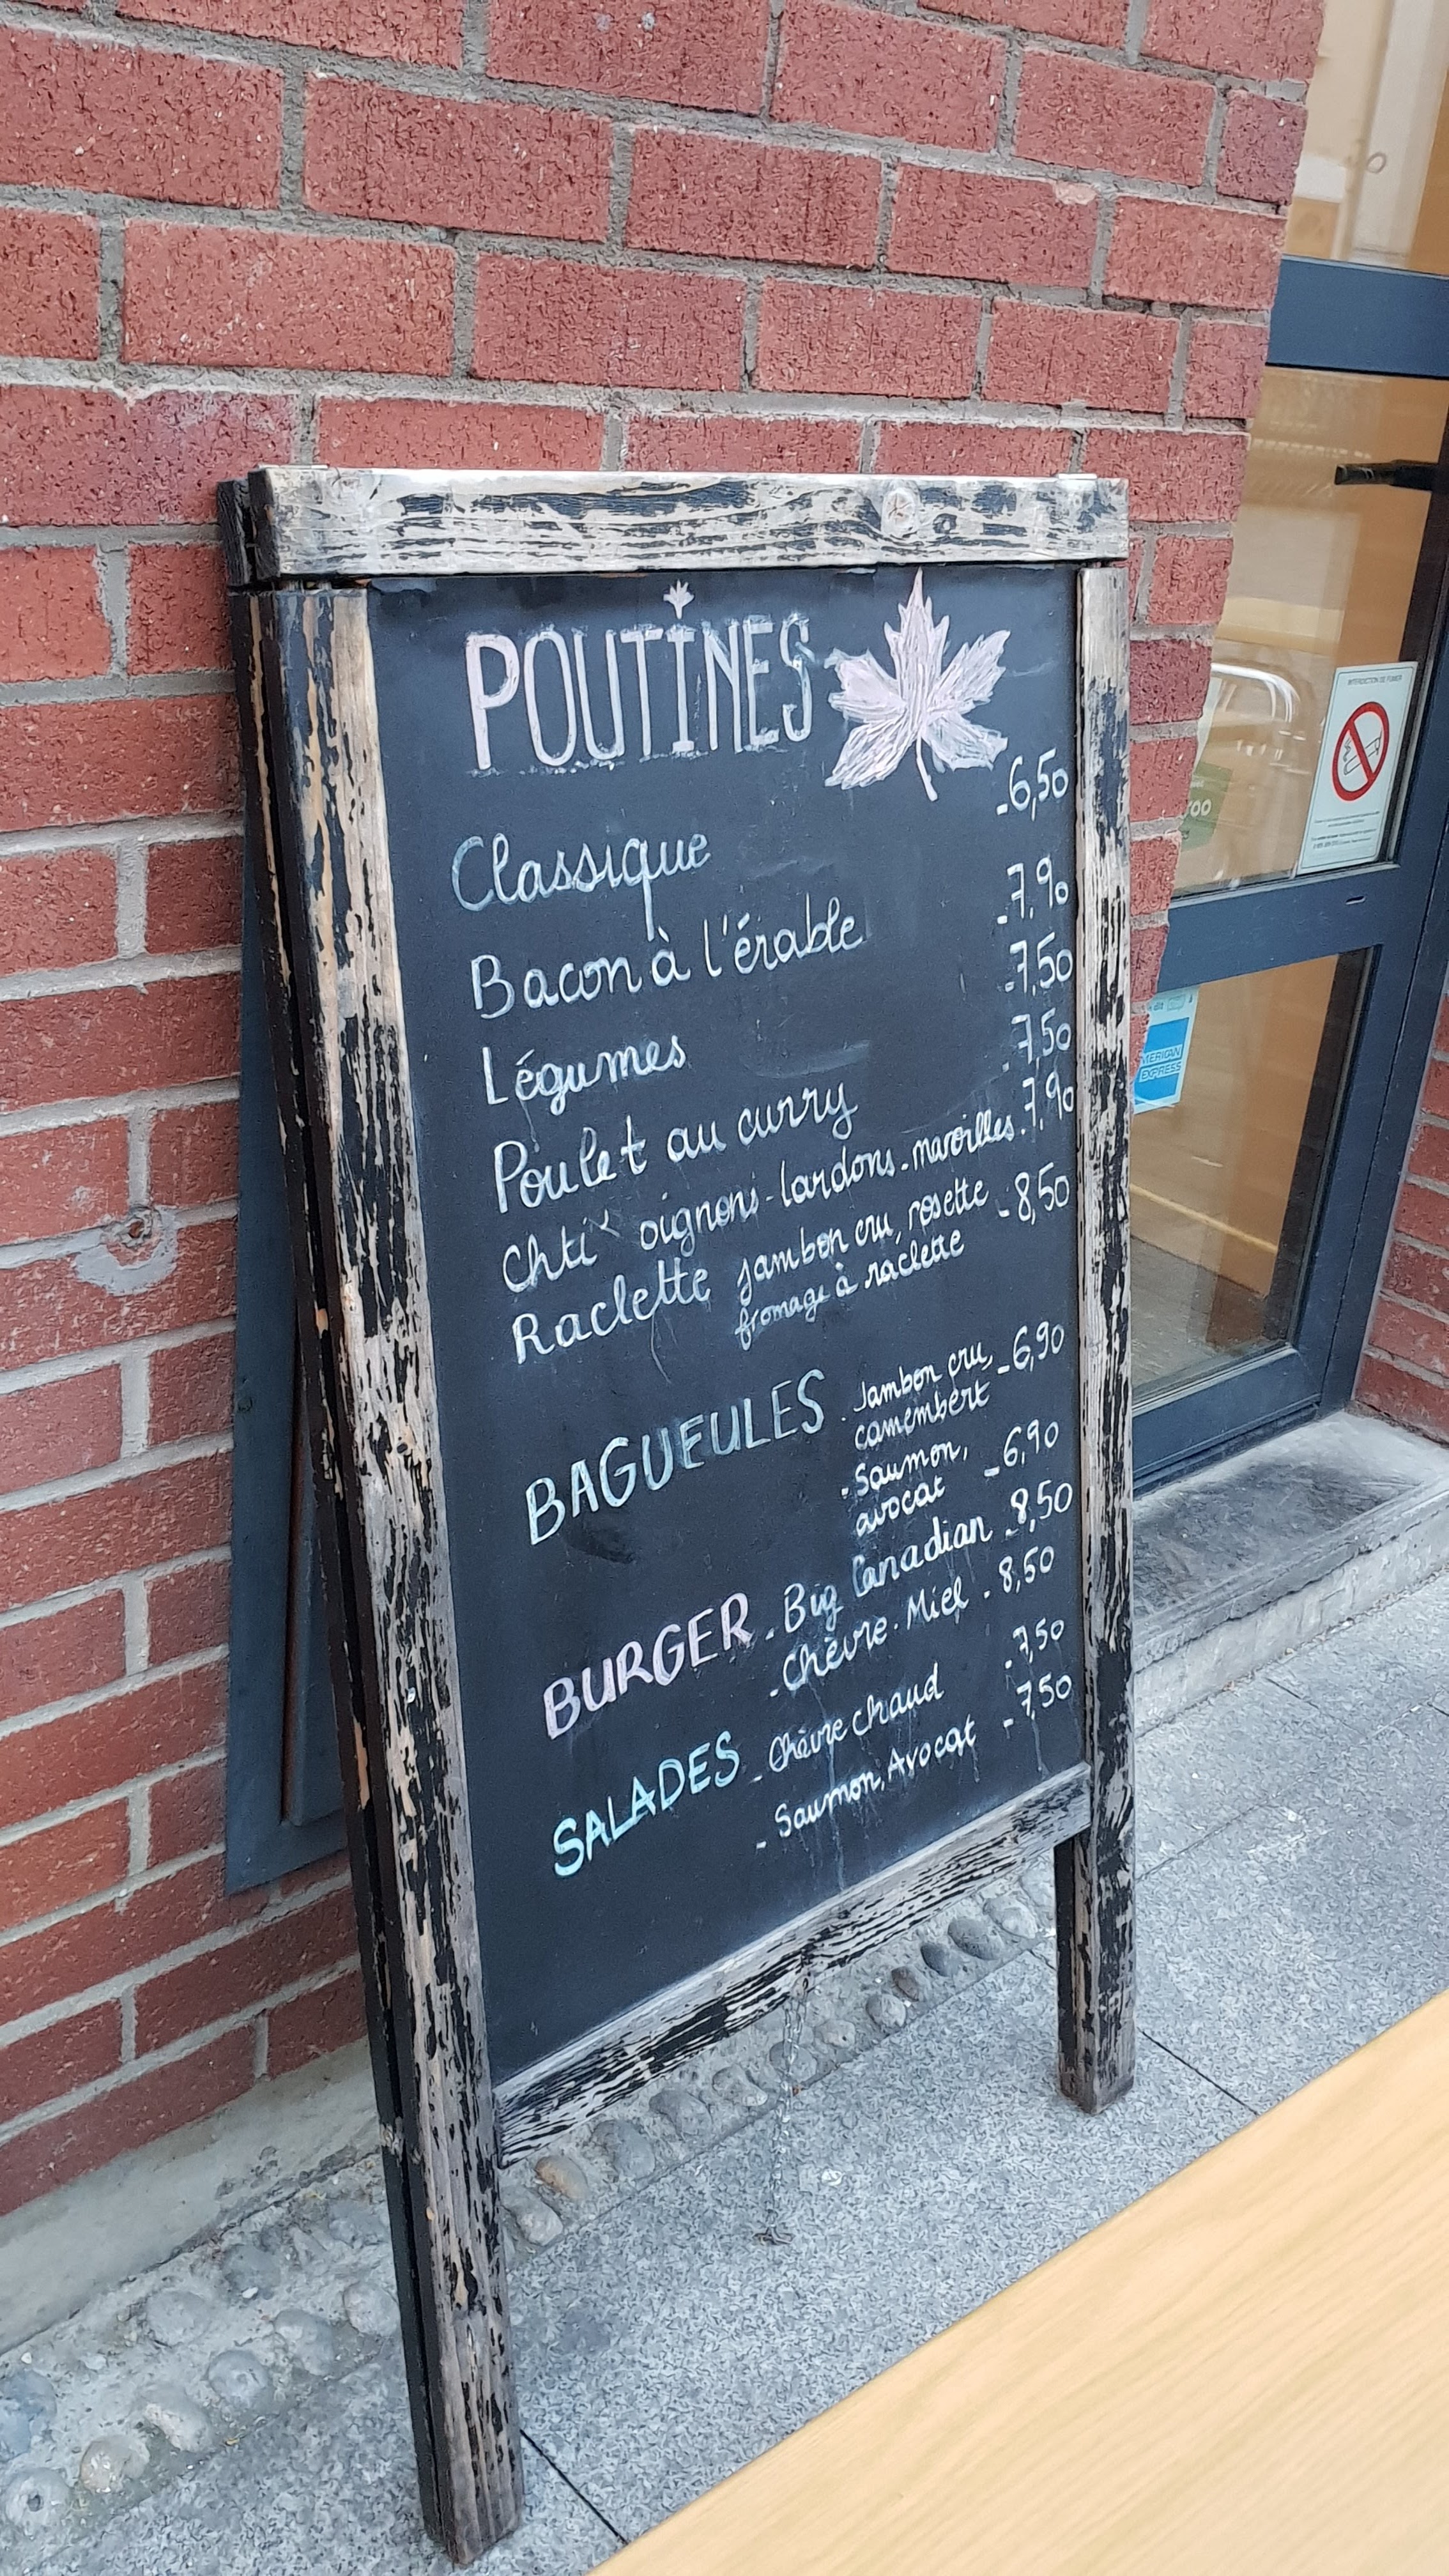 POUTINES
Classique -6,50
Bacon à l'érable -7,90
Légumes -7,50
Poulet au curry -7,50
Chti oignons-lardons-maroilles-7,90
Raclette jambon cru, rosette -8,50
fromage à raclette
BAGUEULES - Jambon cru, -6,90
camembert
- Saumon, -6,90
avocat
BURGER - Big Canadian -8,50
- Chèvre-Miel -8,50
SALADES - Chèvre chaud -7,50
- Saumon, Avocat -7,50
INTERDICTION DE FUMER
MERICAN
EXPRESS